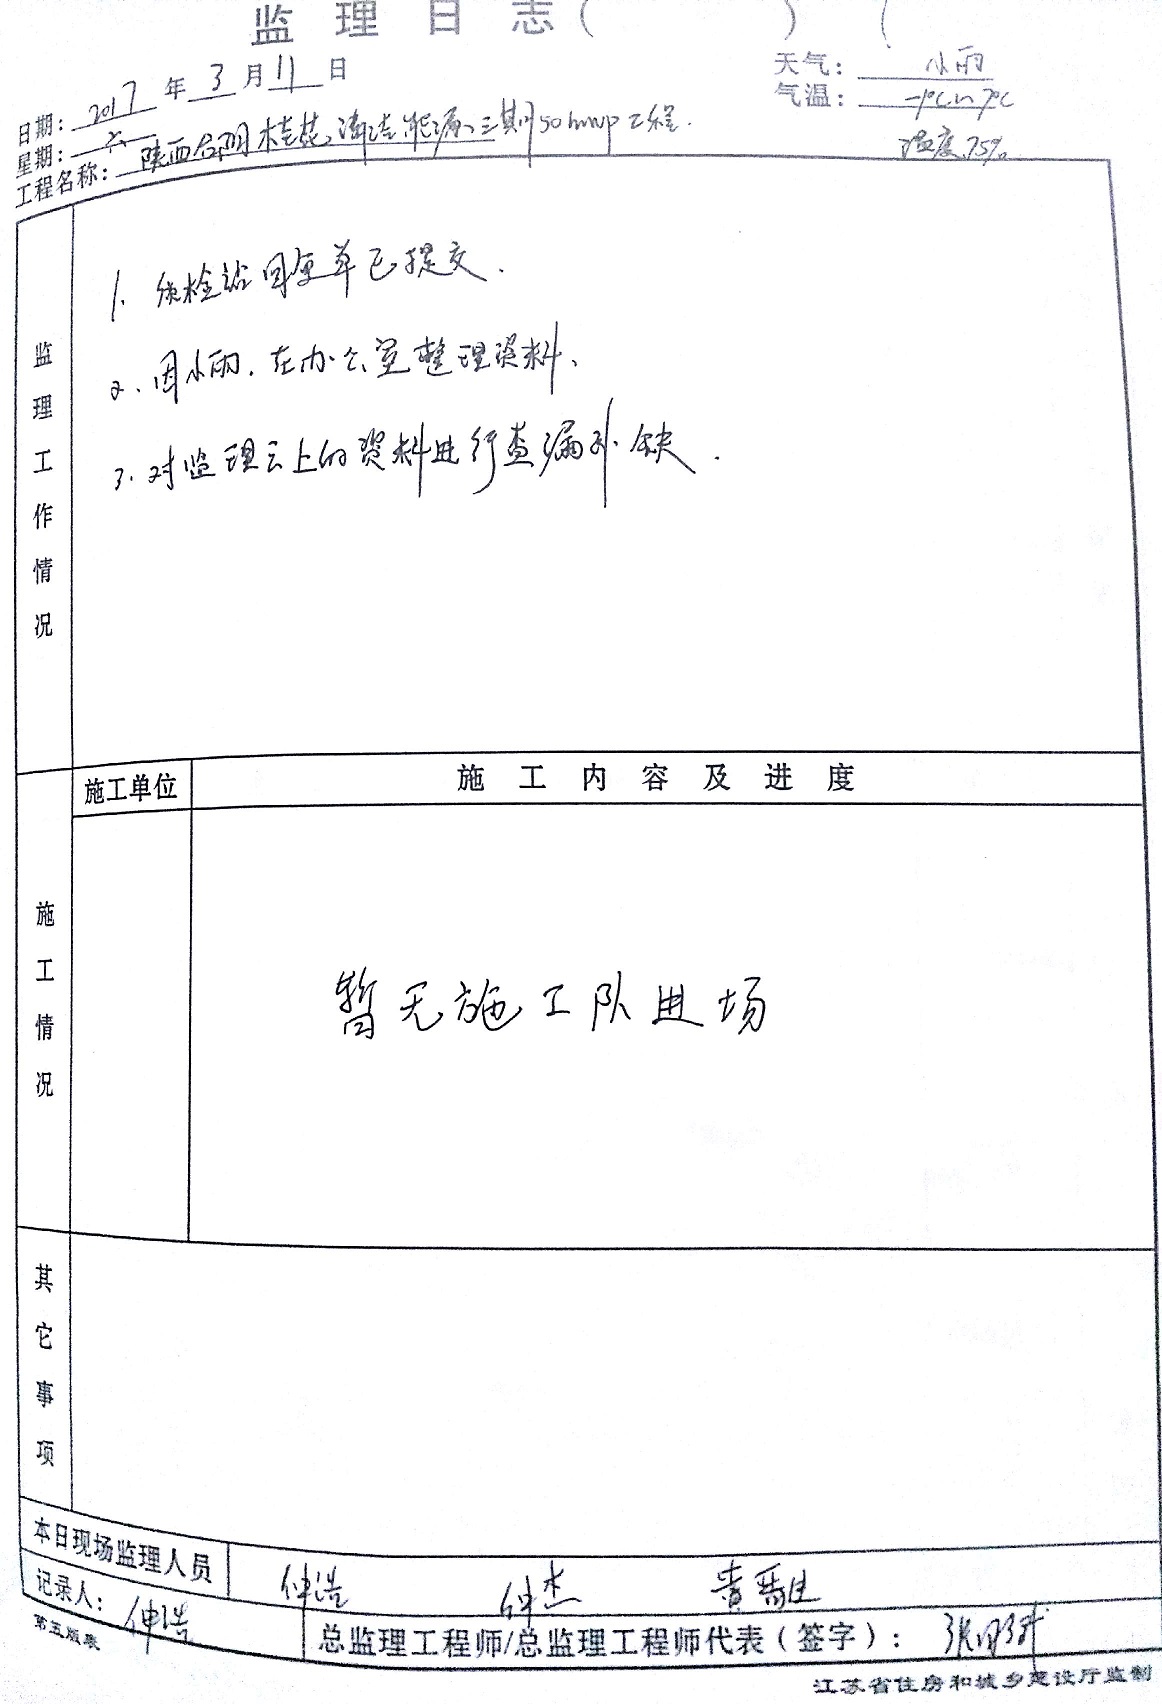 监理日志（ ）（
日期：2017年3月11日
天气：小雨
星期：六
气温：-1℃~7℃
工程名称：陕西合阳桂花清洁能源三期50MWp工程.
湿度75%
监理工作情况
1. 质检站回复单已提交.
2、因小雨.在办公室整理资料、
3.对监理云上的资料进行查漏补缺.
施工单位 施工内容及进度
施工情况
暂无施工队进场
其它事项
本日现场监理人员 仲浩 仲杰 黄
记录人：仲浩
总监理工程师/总监理工程师代表（签字）：张
第五版表
江苏省住房和城乡建设厅监制